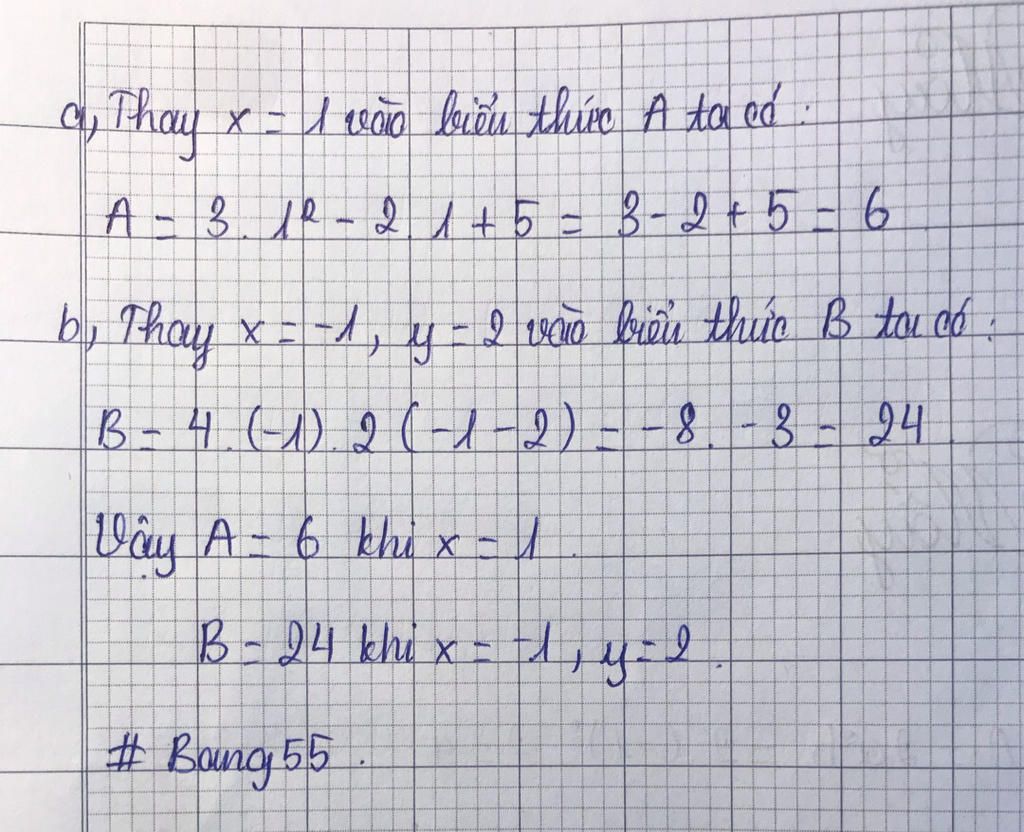 a, Thay x = 1 vào biểu thức A ta có :
A = 3 . 1² - 2 . 1 + 5 = 3 - 2 + 5 = 6
b, Thay x = -1 , y = 2 vào biểu thức B ta có :
B = 4 . (-1) . 2 (-1 - 2) = -8 . -3 = 24 .
Vậy A = 6 khi x = 1 .
B = 24 khi x = -1 , y = 2 .
# Bang55 .